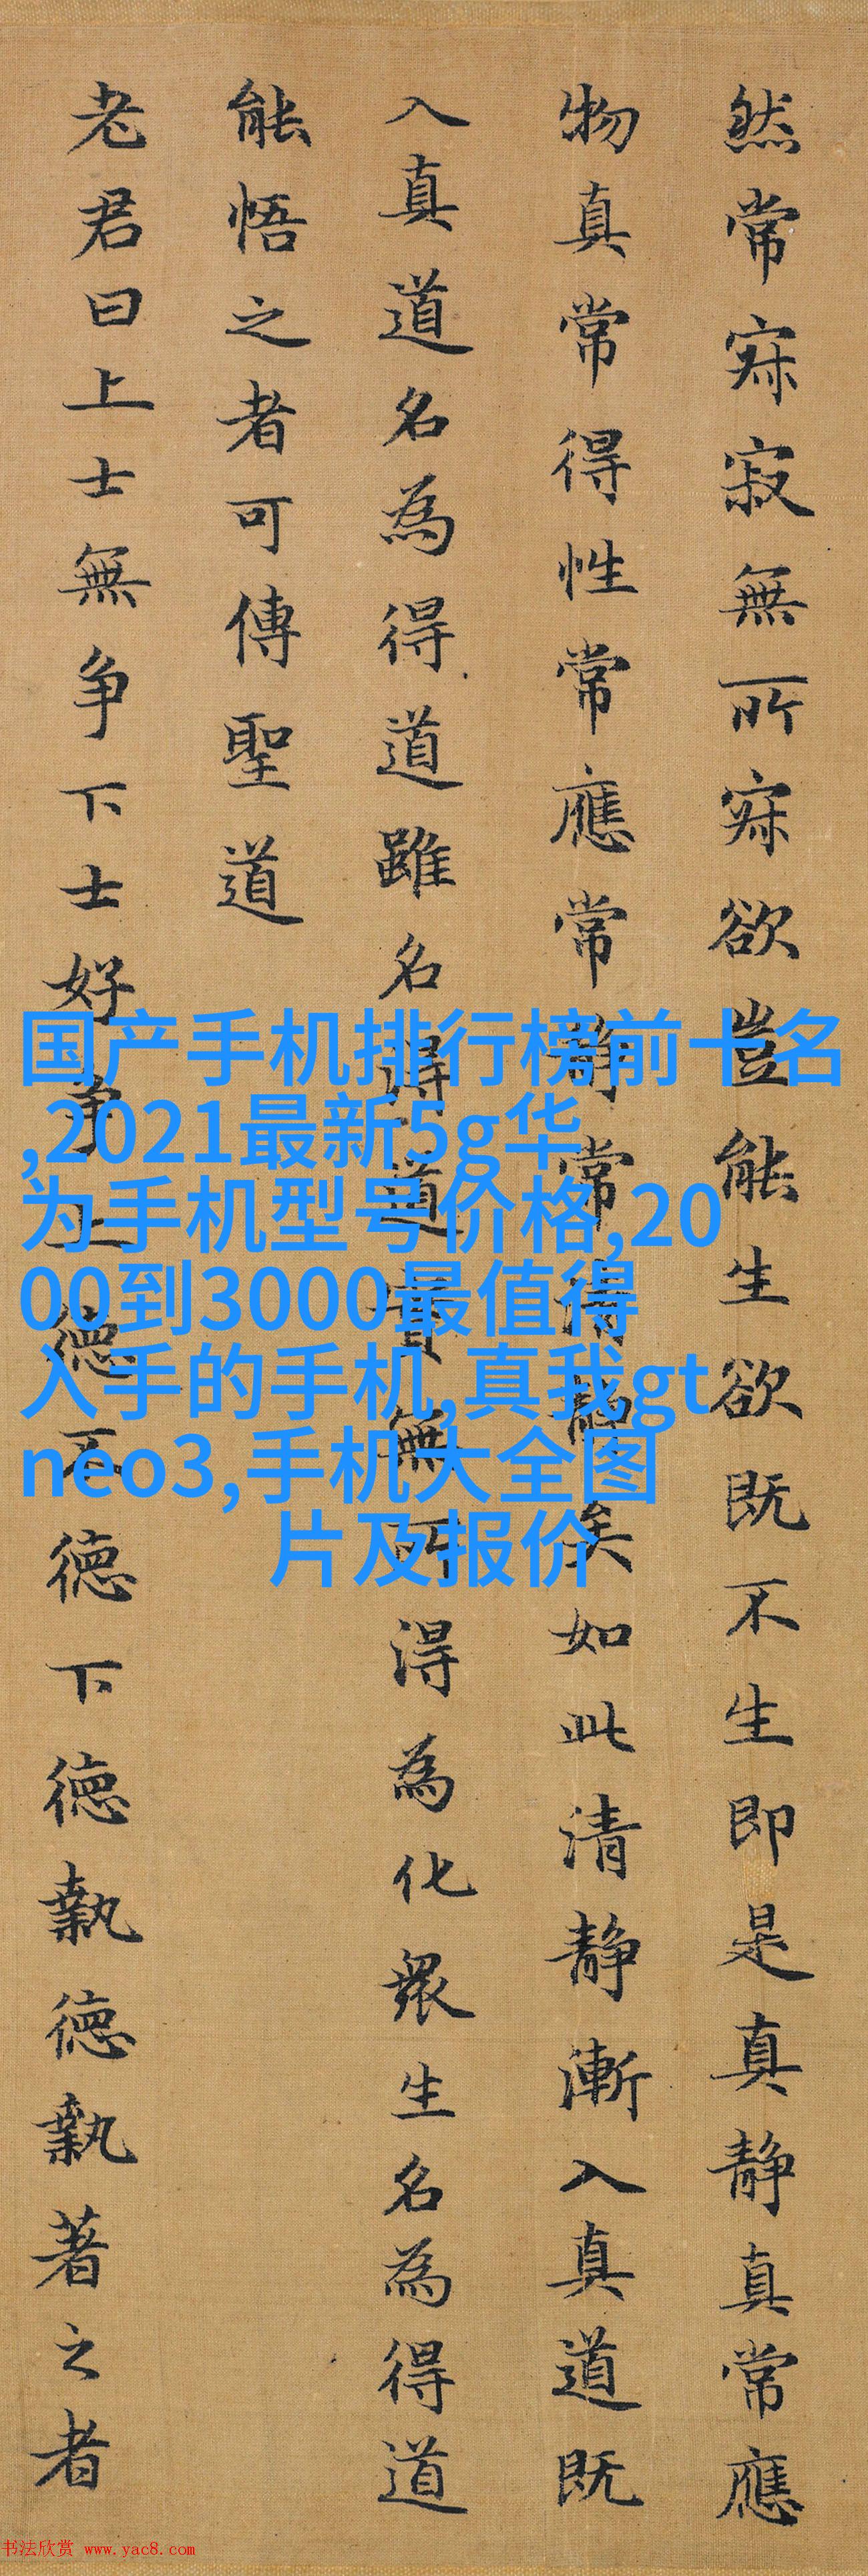 然常寂寂無所寂欲豈能生欲既不生即是真静真常應
物真常得性常應常静常清静矣如此清静漸入真道既
入真道名為得道雖名得道實無所得為化衆生名為得道
能悟之者可傳聖道
老君曰上士無争下士好争上德不德下德執德執著之者
国产手机排行榜前十名
,2021最新5g华
为手机型号价格,20
00到3000最值得
入手的手机,真我gt
neo3,手机大全图
片及报价
书法欣赏 www.yac8.com